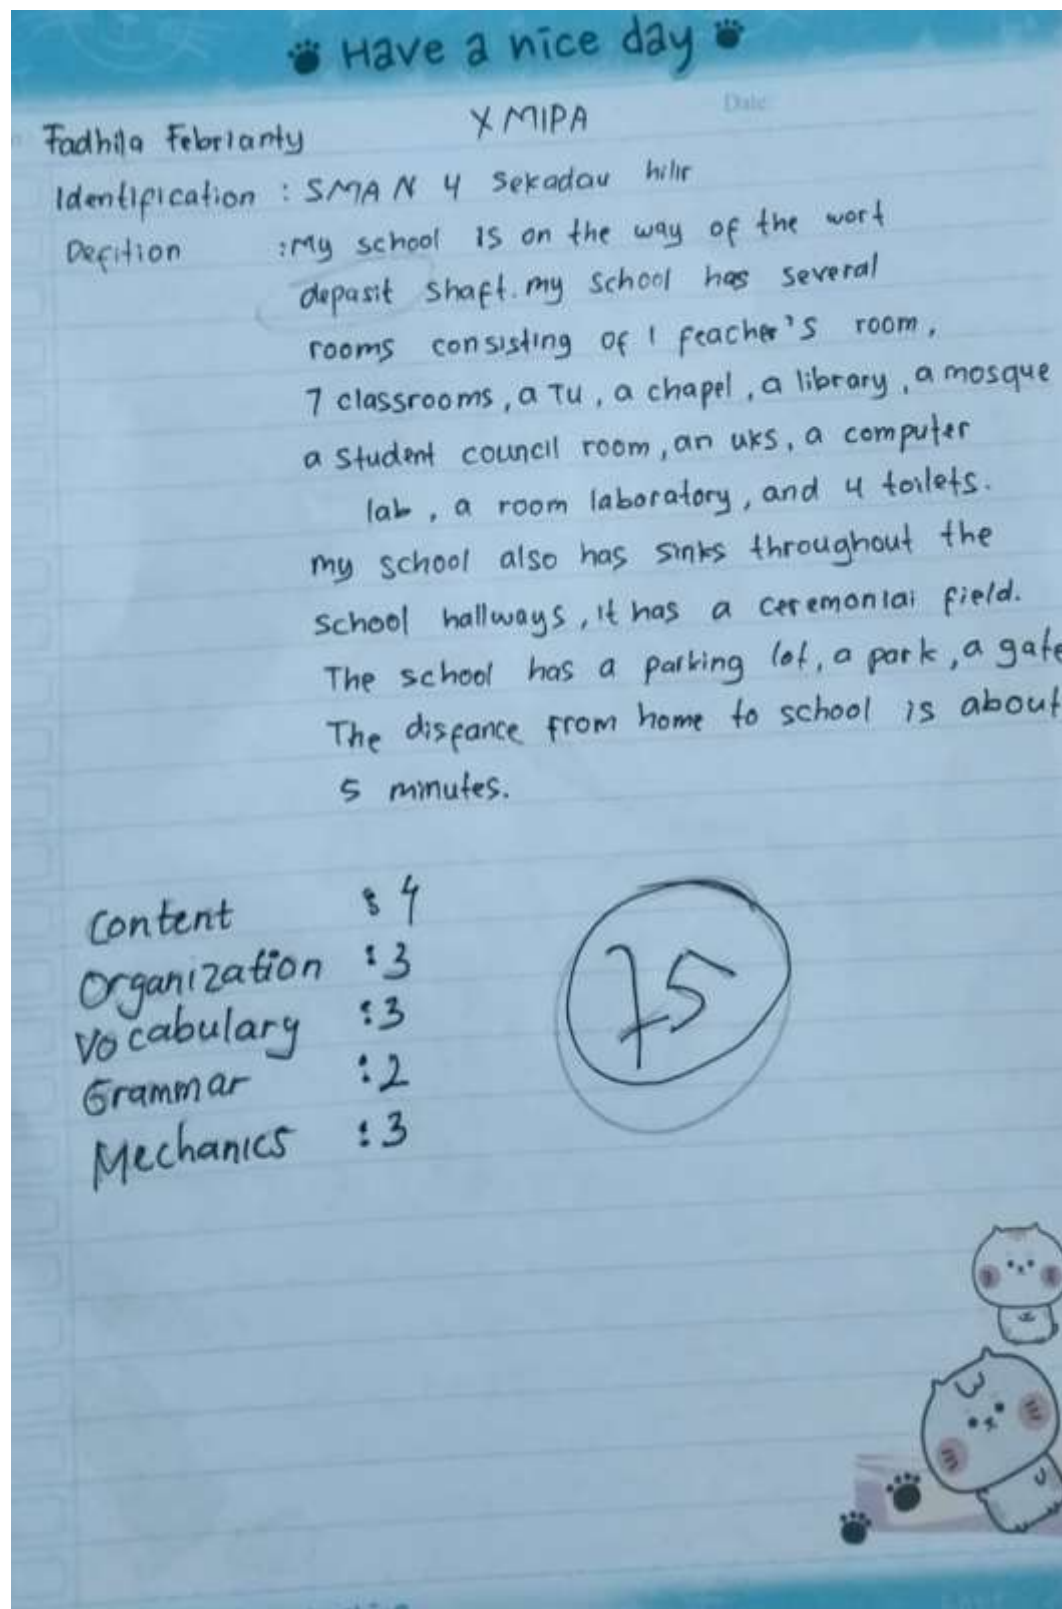 Have a nice day
Date:
Fadhila Febrianty X MIPA
Identification : SMA N 4 Sekadau hilir
Defition : My school is on the way of the wort
depasit shaft. my school has several
rooms consisting of 1 feacher's room,
7 classrooms, a TU, a chapel, a library, a mosque
a student council room, an uks, a computer
lab, a room laboratory, and 4 toilets.
my school also has sinks throughout the
school hallways, it has a ceremonial field.
The school has a parking lot, a park, a gate
The disfance from home to school is about
5 minutes.
Content : 4
Organization : 3
Vocabulary : 3
Grammar : 2
Mechanics : 3
75